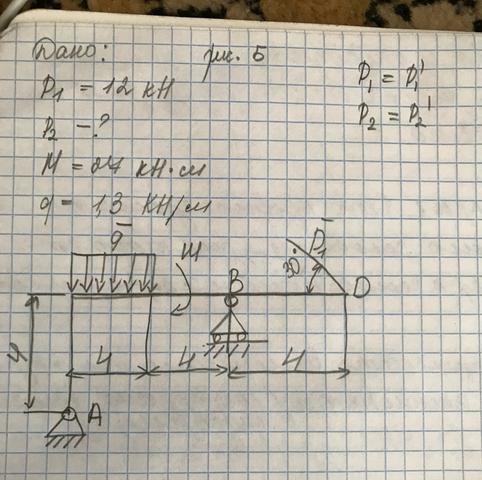 Дано: рис. 5
P₁ = 12 кН
P₂ - ?
M = 24 кН·м
q = 1,3 кН/м
P₁ = P₁'
P₂ = P₂'
q̄
M
B
30°
P̄₁
D
4
4
4
4
A